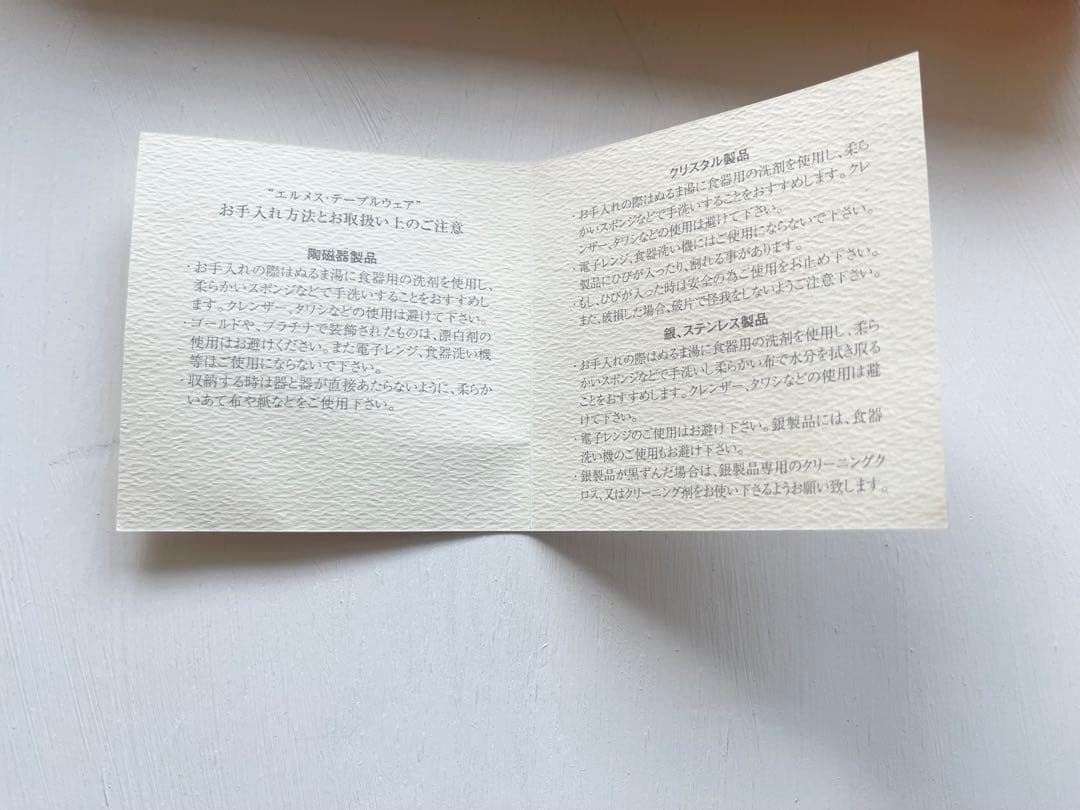 “エルメス・テーブルウェア”
お手入れ方法とお取扱い上のご注意
陶磁器製品
・お手入れの際はぬるま湯に食器用の洗剤を使用し、
柔らかいスポンジなどで手洗いすることをおすすめし
ます。クレンザー、タワシなどの使用は避けて下さい。
・ゴールドや、プラチナで装飾されたものは、漂白剤の
使用はお避けください。また電子レンジ、食器洗い機
等はご使用にならないで下さい。
・収納する時は器と器が直接あたらないように、柔らか
いあて布や紙などをご使用下さい。
クリスタル製品
・お手入れの際はぬるま湯に食器用の洗剤を使用し、柔ら
かいスポンジなどで手洗いすることをおすすめします。クレ
ンザー、タワシなどの使用は避けて下さい。
・電子レンジ、食器洗い機にはご使用にならないで下さい。
製品にひびが入ったり、割れる事があります。
・もし、ひびが入った時は安全の為ご使用をお止め下さい。
また、破損した場合、破片で怪我をしないようご注意下さい。
銀、ステンレス製品
・お手入れの際はぬるま湯に食器用の洗剤を使用し、柔ら
かいスポンジなどで手洗いし柔らかい布で水分を拭き取る
ことをおすすめします。クレンザー、タワシなどの使用は避
けて下さい。
・電子レンジのご使用はお避け下さい。銀製品には、食器
洗い機のご使用もお避け下さい。
・銀製品が黒ずんだ場合は、銀製品専用のクリーニングク
ロス、又はクリーニング剤をお使い下さるようお願い致します。